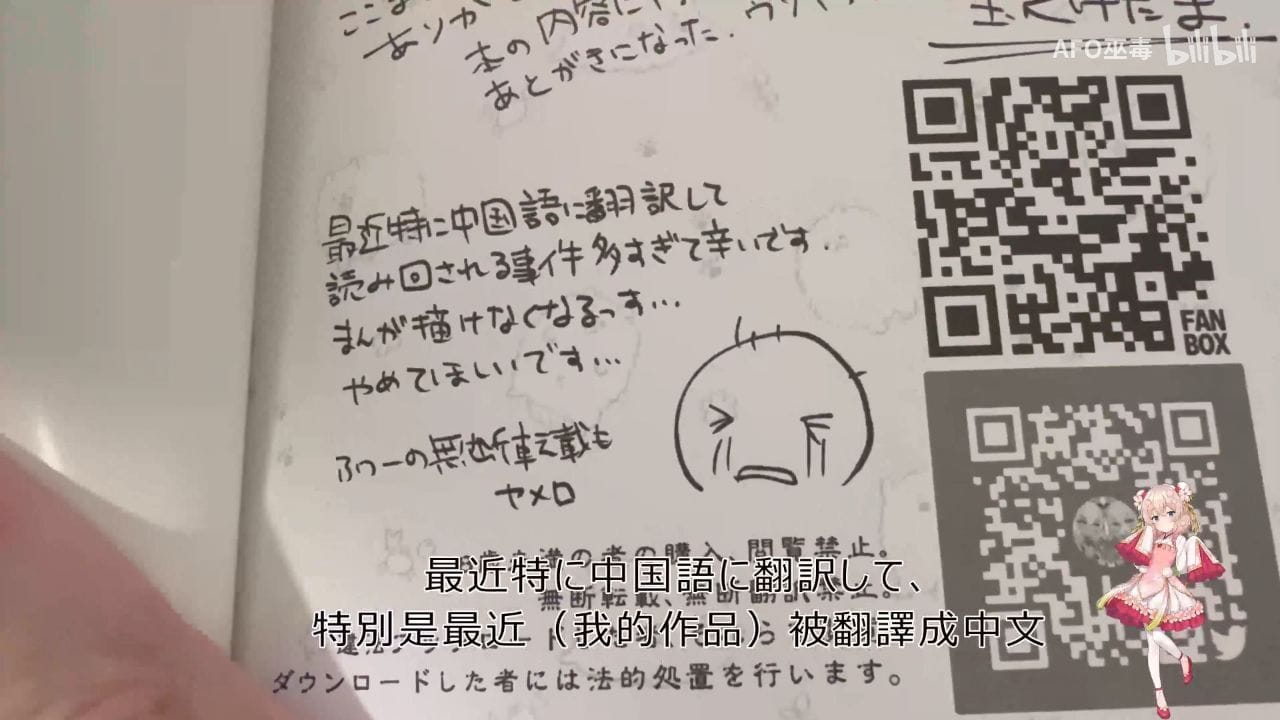 本の内容に
あとがきになった.
AFO巫毒 bilibili
最近特に中国語に翻訳して
読み回される事件多すぎて辛いです.
まんが描けなくなるっす…
やめてほしいです…
ふつーの無断転載も
ヤメロ
FAN
BOX
の者の購入、閲覧禁止。
無断転載、無断翻訳禁止。
ダウンロードした者には法的処置を行います。
最近特に中国語に翻訳して、
特別是最近（我的作品）被翻譯成中文